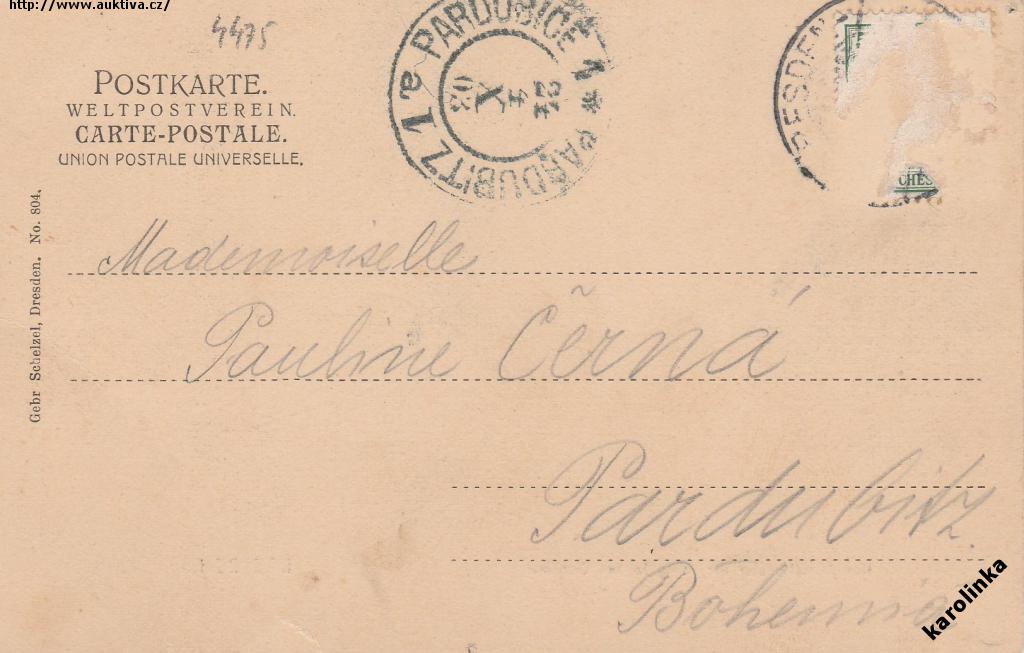 http://www.auktiva.cz/
4475
POSTKARTE.
WELTPOSTVEREIN.
CARTE-POSTALE.
UNION POSTALE UNIVERSELLE.
PARDUBICE 1 ** PARDUBITZ 1 a
24
X
03
DRESDEN
CHES
Gebr Schelzel, Dresden. No. 804.
Mademoiselle
Pauline Černá
Pardubitz.
Bohemia
karolinka